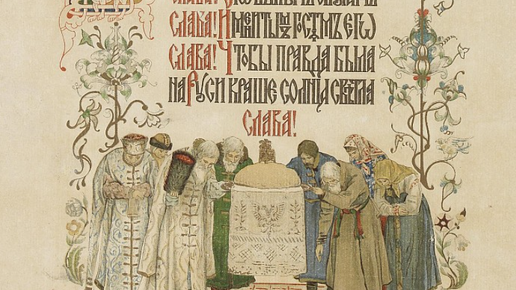 СЛАВА! ИМЕНИТЫМЪ ГОСТѦМЪ ЕГѠ
СЛАВА! ЧТОБЫ ПРАВДА БЫЛА
НА РУСИ КРАШЕ СОЛНЦА СВѢТЛА
СЛАВА!